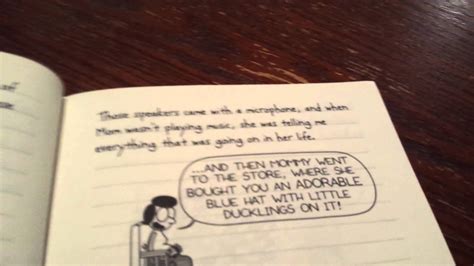 Those speakers came with a microphone, and when
Mom wasn't playing music, she was telling me
everything that was going on in her life.
...AND THEN MOMMY WENT
TO THE STORE, WHERE SHE
BOUGHT YOU AN ADORABLE
BLUE HAT WITH LITTLE
DUCKLINGS ON IT!